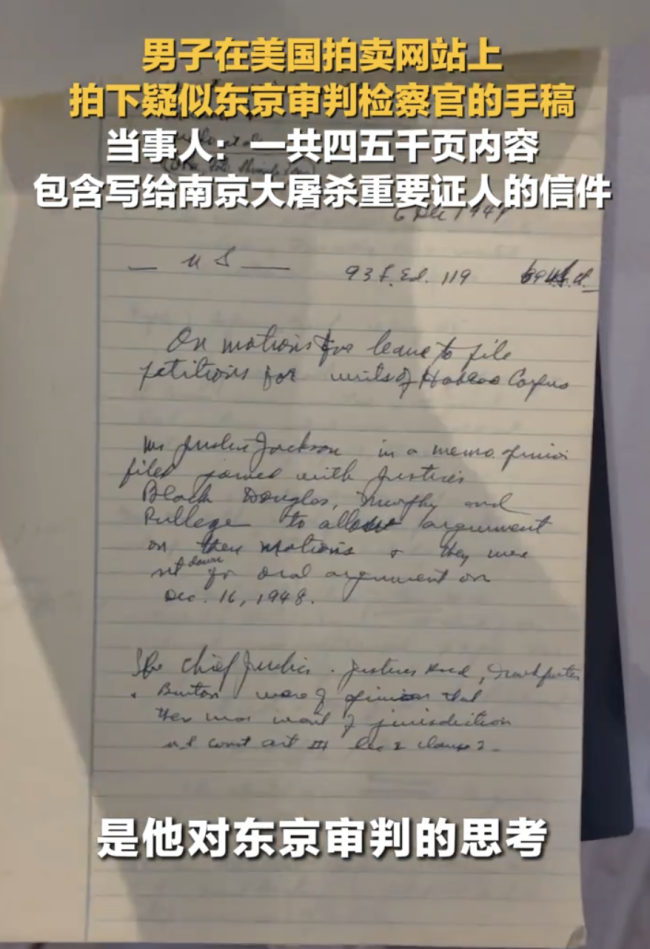 男子在美国拍卖网站上
拍下疑似东京审判检察官的手稿
当事人：一共四五千页内容
包含写给南京大屠杀重要证人的信件
6 Dec 194
— U S — 93 L. Ed. 119
On motions for leave to file
petitions for writs of Habeas Corpus
Mr Justice Jackson in a memo. opinion
filed joined with Justices
Black Douglas, Murphy and
Rutledge to allow argument
on these motions & they were
set down for oral argument on
Dec. 16, 1948.
The Chief Justice. Justices Reed, Frankfurter
& Burton were of opinion that
there was want of jurisdiction
const art III Sec 2 clause 2.
是他对东京审判的思考